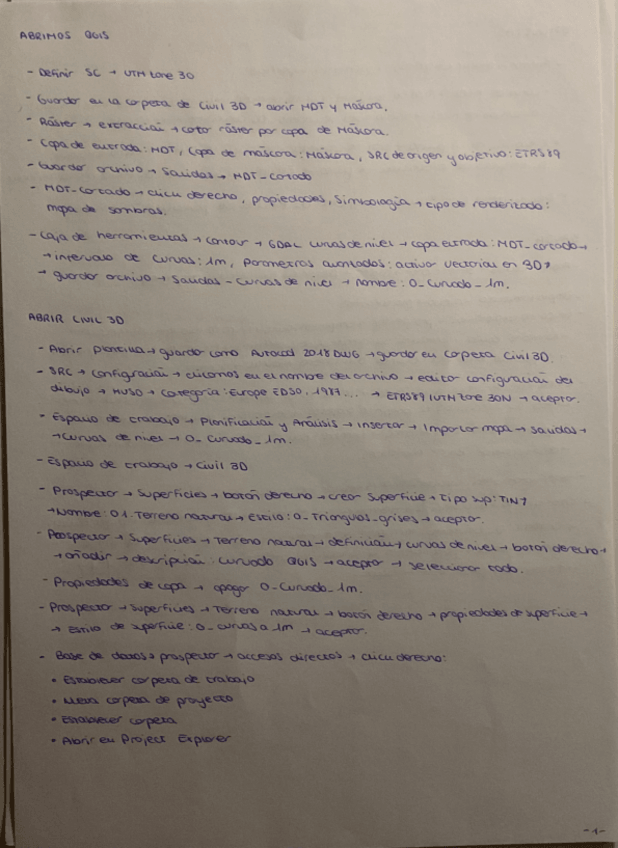 ABRIMOS QGIS
- Definir SC → UTM zone 30
- Guardar en la carpeta de Civil 3D → abrir MDT y Máscara.
- Ráster → extracción → corta ráster por capa de Máscara.
- Capa de entrada: MDT, Capa de máscara: Máscara, SRC de origen y objetivo: ETRS89
- Guardar archivo → Salidas → MDT_Cortado
- MDT_Cortado → click derecho, propiedades, Simbología → tipo de renderizado:
mapa de sombras.
- Caja de herramientas → Contour → GDAL curvas de nivel → capa entrada: MDT_cortado →
→ intervalo de curvas: 1m, parámetros avanzados: activar vectorias en 3D →
→ guardar archivo → Salidas - Curvas de nivel → nombre: 0_Curvado_1m.
ABRIR CIVIL 3D
- Abrir plantilla → guardar como Autocad 2018 DWG → guardar en carpeta Civil 3D.
- SRC → Configuración → clicamos en el nombre del archivo → editar configuración del
dibujo → HUSO → Categoría: Europe 1989... → ETRS89/UTM zone 30N → aceptar.
- Espacio de trabajo → Planificación y Análisis → Insertar → Importar mapa → Salidas →
→ Curvas de nivel → 0_Curvado_1m.
- Espacio de trabajo → Civil 3D
- Prospector → Superficies → botón derecho → crear Superficie → Tipo sup: TIN →
→ Nombre: 01. Terreno natural → Estilo: 0_Triangulos_grises → aceptar.
- Prospector → Superficies → Terreno natural → definición → curvas de nivel → botón derecho →
→ añadir → descripción: curvado QGIS → aceptar → seleccionar todo.
- Propiedades de capa → apagar 0_Curvado_1m.
- Prospector → Superficies → Terreno natural → botón derecho → propiedades de superficie →
→ Estilo de superficie: 0_curvas a 1m → aceptar.
- Base de datos → prospector → accesos directos → click derecho:
• Establecer carpeta de trabajo
• Nueva carpeta de proyecto
• Establecer carpeta
• Abrir en Project Explorer
-1-